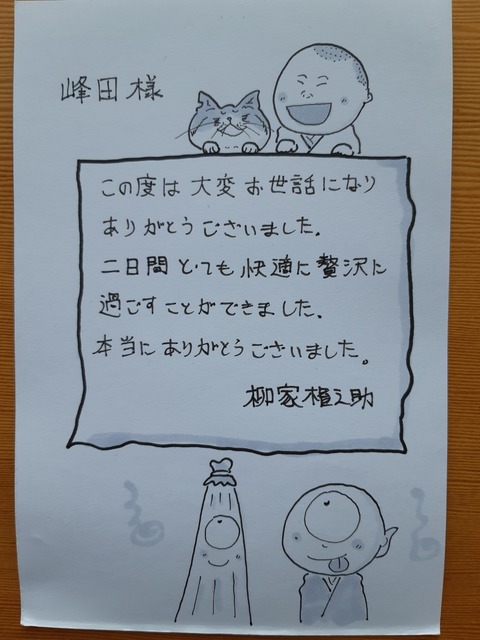 峰田様
この度は大変お世話になり
ありがとうございました.
二日間とても快適に贅沢に
過ごすことができました.
本当にありがとうございました。
柳家権之助